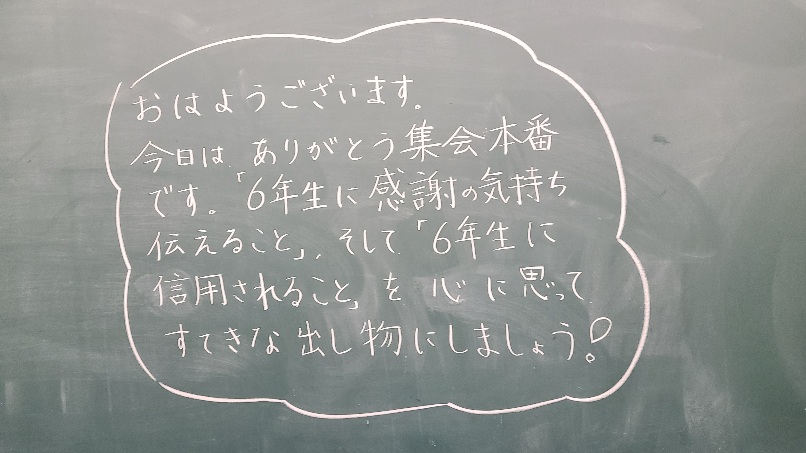 おはようございます。
今日は、ありがとう集会本番
です。「6年生に感謝の気持ち
伝えること」、そして「6年生に
信用されること」を 心に思って
すてきな出し物にしましょう!